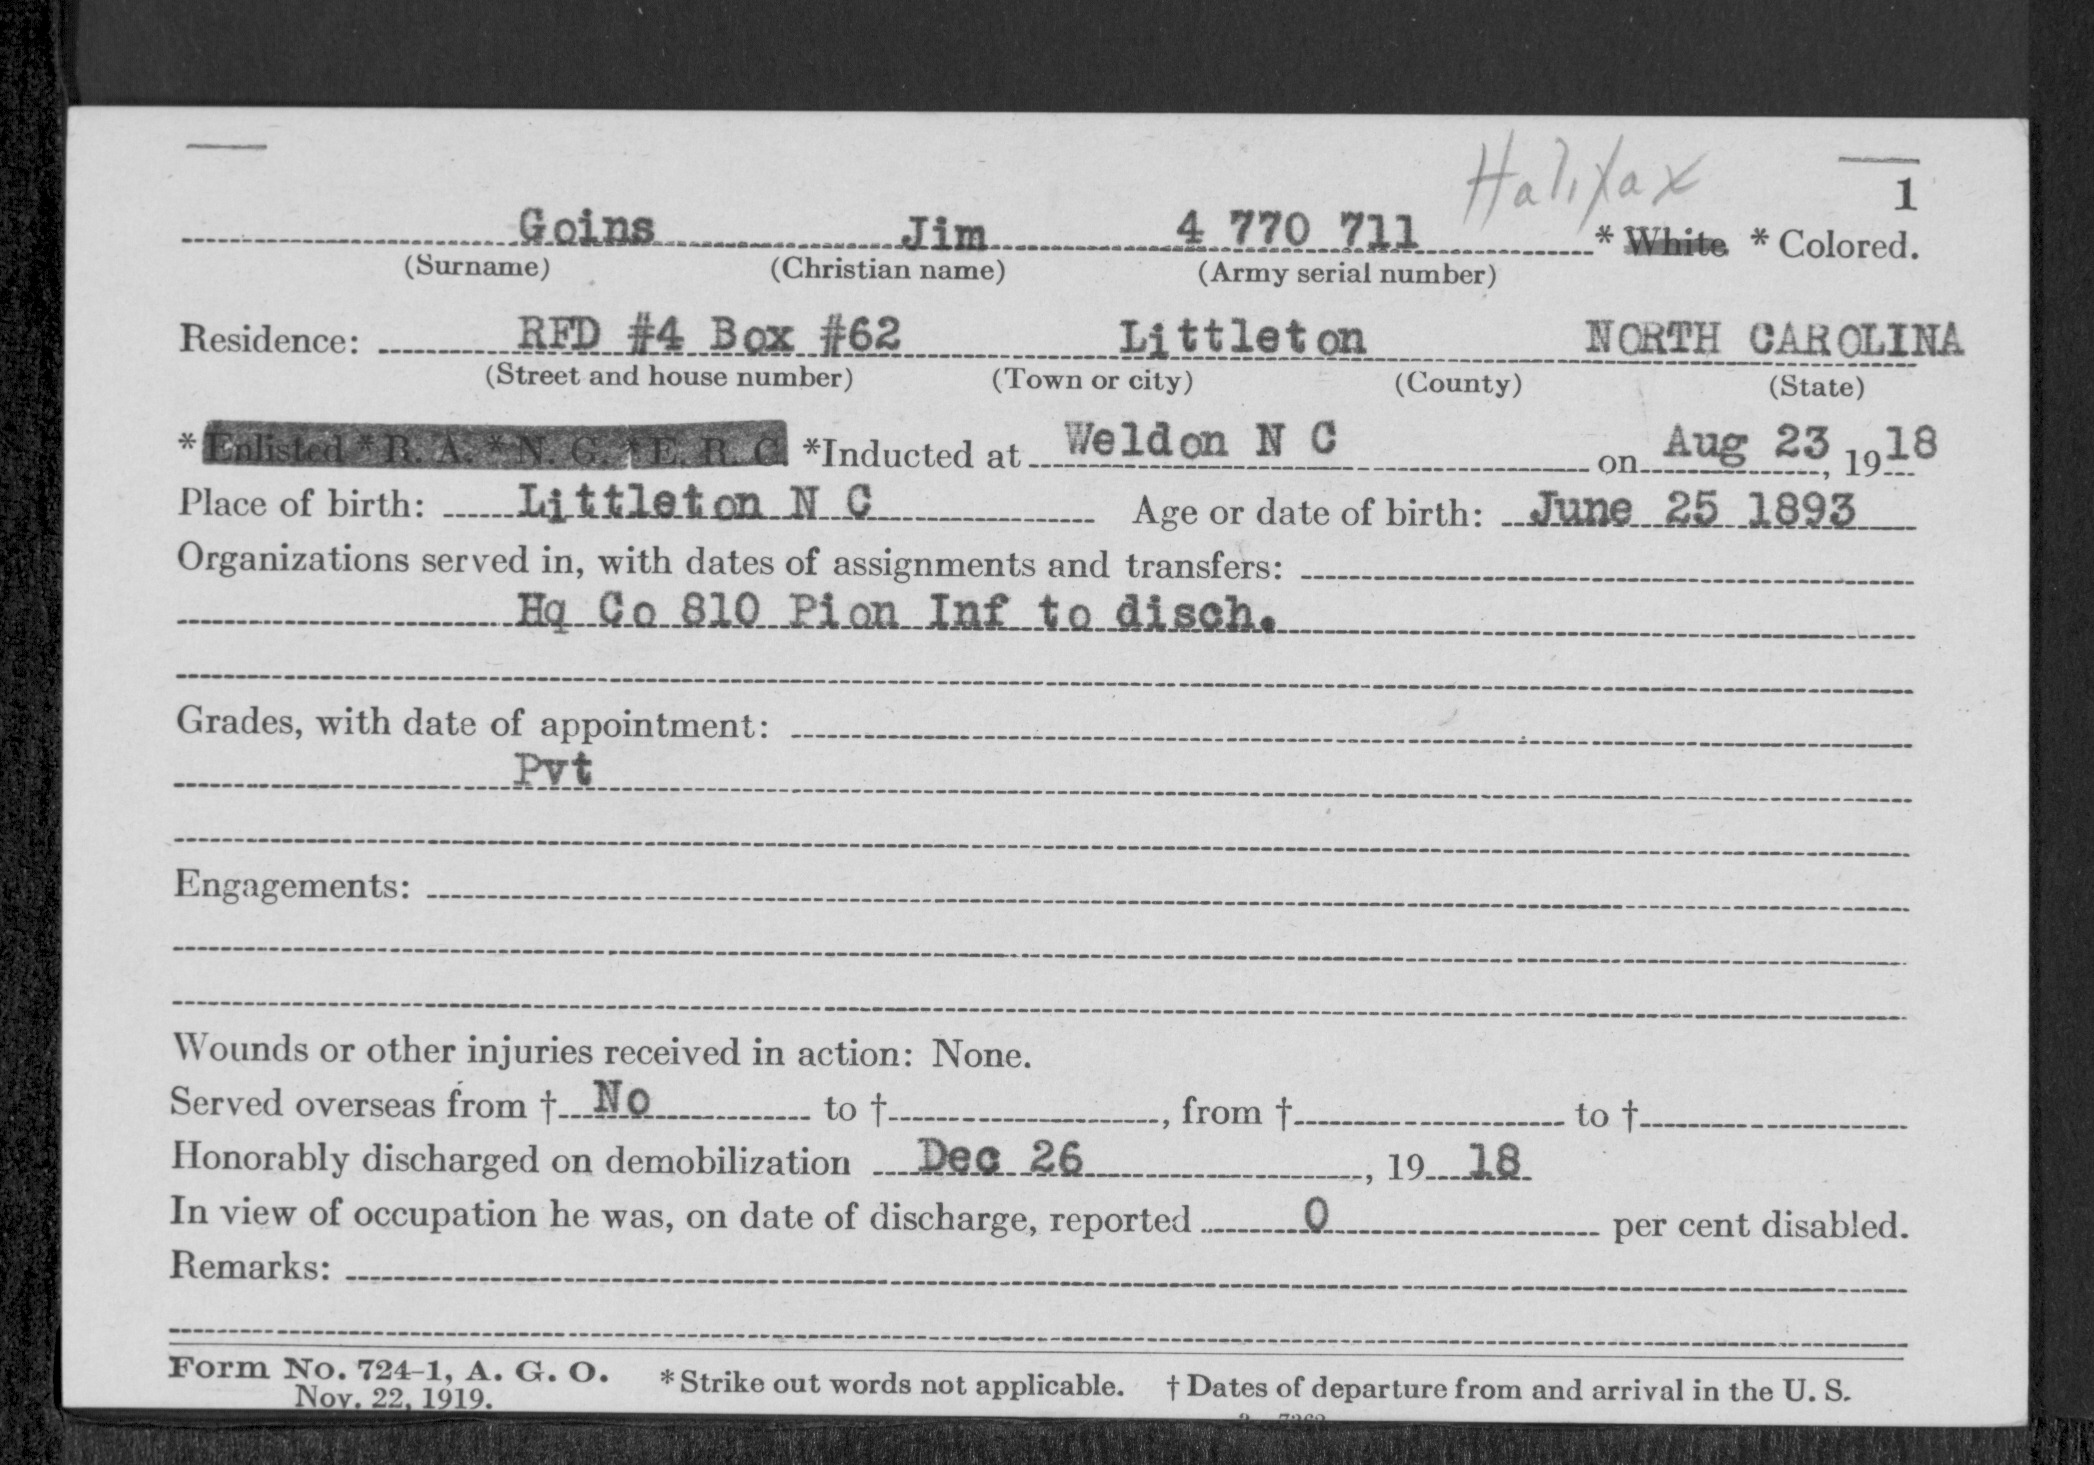 Halifax
1
Goins Jim 4 770 711 * White * Colored.
(Surname) (Christian name) (Army serial number)
Residence: RFD #4 Box #62 Littleton NORTH CAROLINA
(Street and house number) (Town or city) (County) (State)
* Enlisted * R. A. * N. G. * E. R. C. *Inducted at Weldon N C on Aug 23, 1918
Place of birth: Littleton N C Age or date of birth: June 25 1893
Organizations served in, with dates of assignments and transfers:
Hq Co 810 Pion Inf to disch.
Grades, with date of appointment:
Pvt
Engagements:
Wounds or other injuries received in action: None.
Served overseas from † No to †, from † to †
Honorably discharged on demobilization Dec 26, 19 18
In view of occupation he was, on date of discharge, reported 0 per cent disabled.
Remarks:
Form No. 724-1, A. G. O. * Strike out words not applicable. † Dates of departure from and arrival in the U. S.
Nov. 22, 1919.